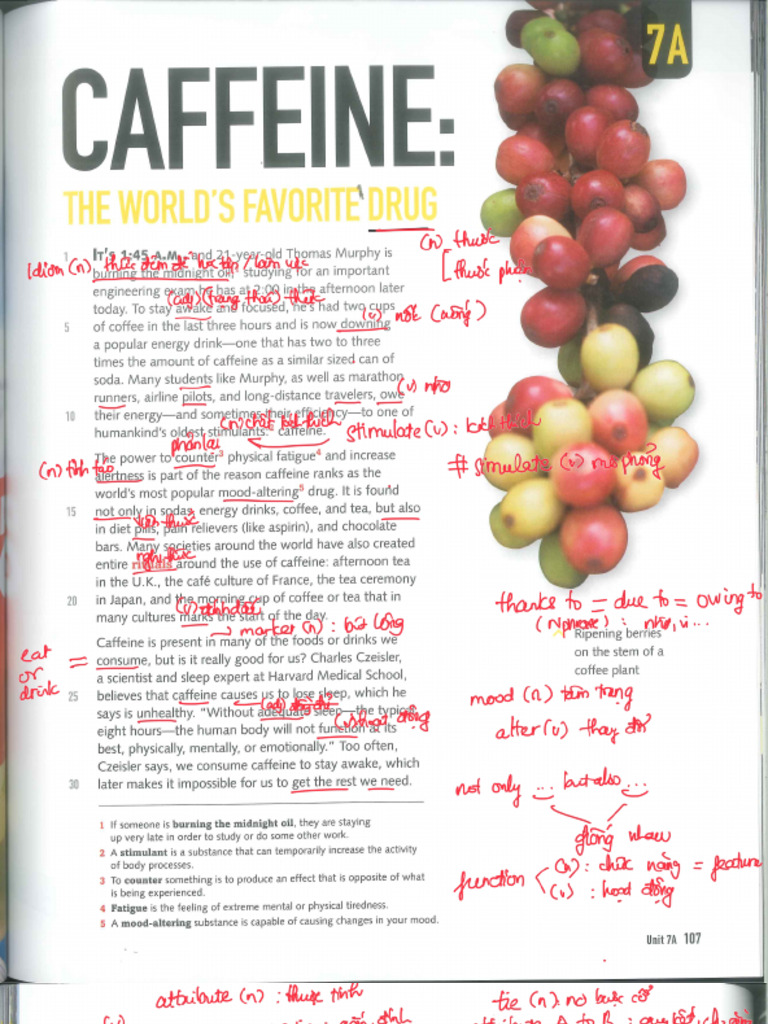 7A
CAFFEINE:
THE WORLD'S FAVORITE DRUG
(n) thuốc
[thuốc phiện
1 IT'S 1:45 A.M. and 21-year-old Thomas Murphy is
Idiom (n) thức đêm để học tập / làm việc
burning the midnight oil, studying for an important
engineering exam he has at 2:00 in the afternoon later
(adj) (trạng thái) thức
today. To stay awake and focused, he's had two cups
(v) nốc (uống)
5 of coffee in the last three hours and is now downing
a popular energy drink—one that has two to three
times the amount of caffeine as a similar sized can of
soda. Many students like Murphy, as well as marathon
(v) nhờ
runners, airline pilots, and long-distance travelers, owe
10 their energy—and sometimes their efficiency—to one of
(n) chất kích thích
humankind's oldest stimulants: caffeine.
stimulate (v): kích thích
phản lại
The power to counter³ physical fatigue⁴ and increase
# simulate (v) mô phỏng
(n) tỉnh táo
alertness is part of the reason caffeine ranks as the
world's most popular mood-altering⁵ drug. It is found
15 not only in sodas, energy drinks, coffee, and tea, but also
viên thuốc
in diet pills, pain relievers (like aspirin), and chocolate
bars. Many societies around the world have also created
nghi thức
entire rituals around the use of caffeine: afternoon tea
in the U.K., the café culture of France, the tea ceremony
20 in Japan, and the morning cup of coffee or tea that in
(v) đánh dấu
many cultures marks the start of the day.
→ marker (n): bút lông
thanks to = due to = owing to
(N phrase): nhờ, vì...
Ripening berries
on the stem of a
coffee plant
Caffeine is present in many of the foods or drinks we
eat
or
drink
=
consume, but is it really good for us? Charles Czeisler,
a scientist and sleep expert at Harvard Medical School,
25 believes that caffeine causes us to lose sleep, which he
(adj)
says is unhealthy. "Without adequate sleep—the typical
(v) hoạt động
eight hours—the human body will not function at its
best, physically, mentally, or emotionally." Too often,
Czeisler says, we consume caffeine to stay awake, which
30 later makes it impossible for us to get the rest we need.
mood (n) tâm trạng
alter (v) thay đổi
not only ... but also ...
giống nhau
function (n): chức năng = feature
(v): hoạt động
1 If someone is burning the midnight oil, they are staying
up very late in order to study or do some other work.
2 A stimulant is a substance that can temporarily increase the activity
of body processes.
3 To counter something is to produce an effect that is opposite of what
is being experienced.
4 Fatigue is the feeling of extreme mental or physical tiredness.
5 A mood-altering substance is capable of causing changes in your mood.
Unit 7A 107
attribute (n): thuộc tính
tie (n):